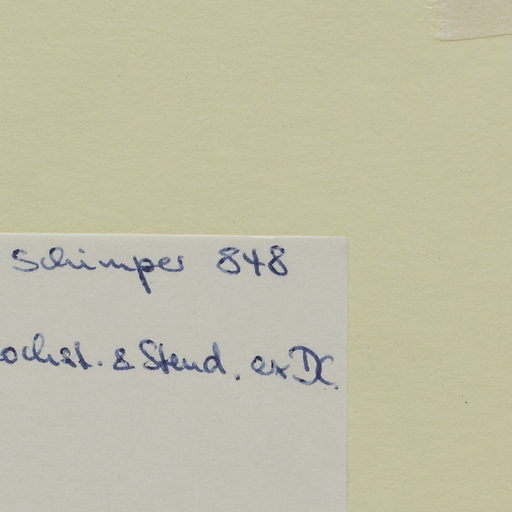 Schimper 848
ochst. & Steud. ex DC.